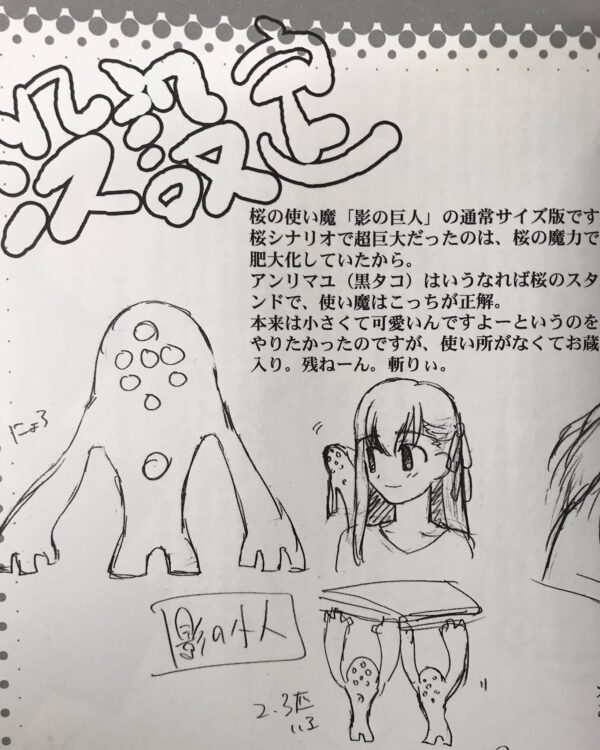 没設定
桜の使い魔「影の巨人」の通常サイズ版です
桜シナリオで超巨大だったのは、桜の魔力で
肥大化していたから。
アンリマユ（黒タコ）はいうなれば桜のスタ
ンドで、使い魔はこっちが正解。
本来は小さくて可愛いんですよーというのを
やりたかったのですが、使い所がなくてお蔵
入り。残ねーん。斬りぃ。
にょろ
影の小人
2.3匹
いる